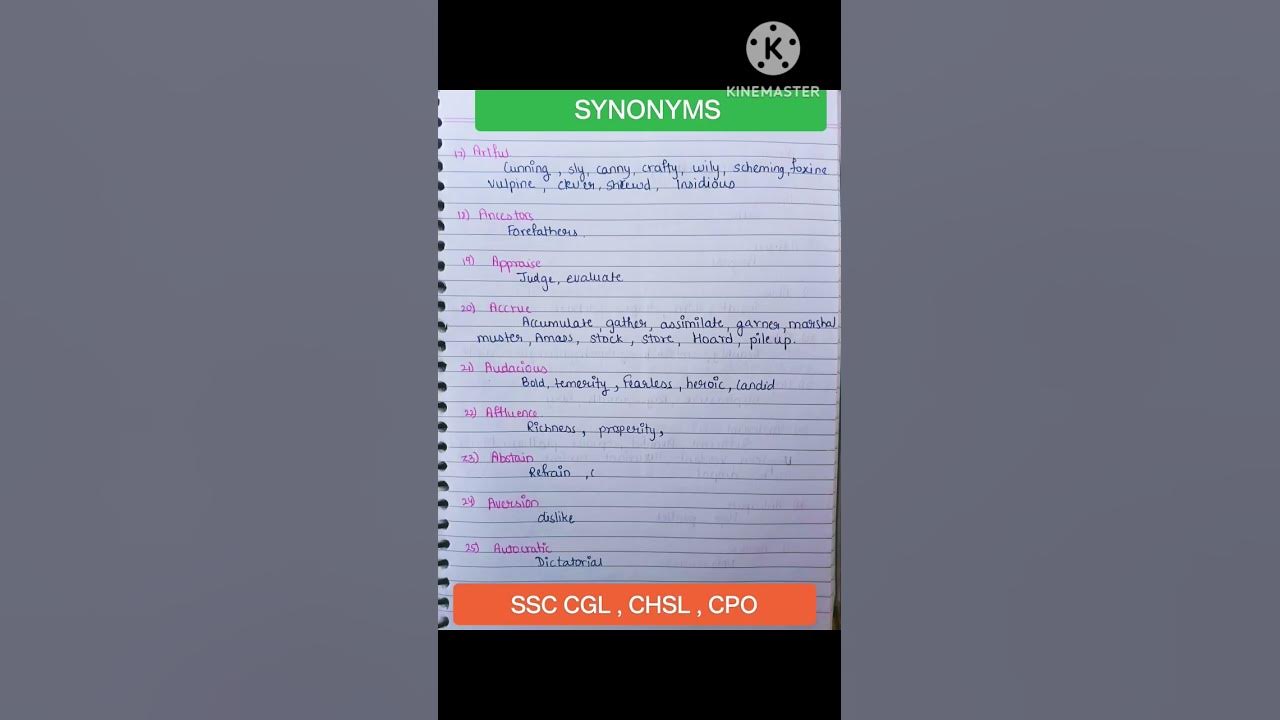 KINEMASTER
SYNONYMS
17) Artful
Cunning, sly, canny, crafty, wily, scheming, foxine
vulpine, clever, shrewd, Insidious
18) Ancestors
Forefathers.
19) Appraise
Judge, evaluate
20) Accrue
Accumulate, gather, assimilate, garner, marshal
muster, Amass, stock, store, Hoard, pile up.
21) Audacious
Bold, temerity, fearless, heroic, candid
22) Affluence
Richness, properity,
23) Abstain
Refrain, (
24) Aversion
dislike
25) Autocratic
Dictatorial
SSC CGL , CHSL , CPO